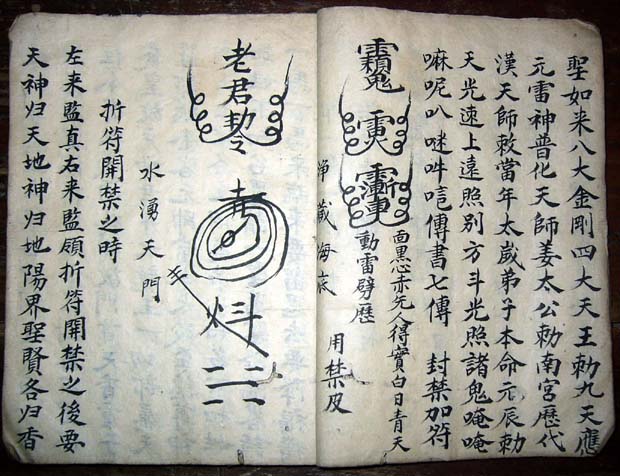 聖如来八大金剛四大天王勅九天應
元雷神普化天師姜太公勅南宮歷代
漢天師敕當年太歲弟子本命元辰勅
天光速上遠照別方斗光照諸鬼唵唵
嘛呢叭咪吽傳書七傳 封禁加符
面黑心赤先人得實白日青天
動雷劈歷 用禁皮
藏海底
老君勅令
水湧天門
折符開禁之時
左来監真右来監領折符開禁之後要
天神归天地神归地陽界聖賢各归香